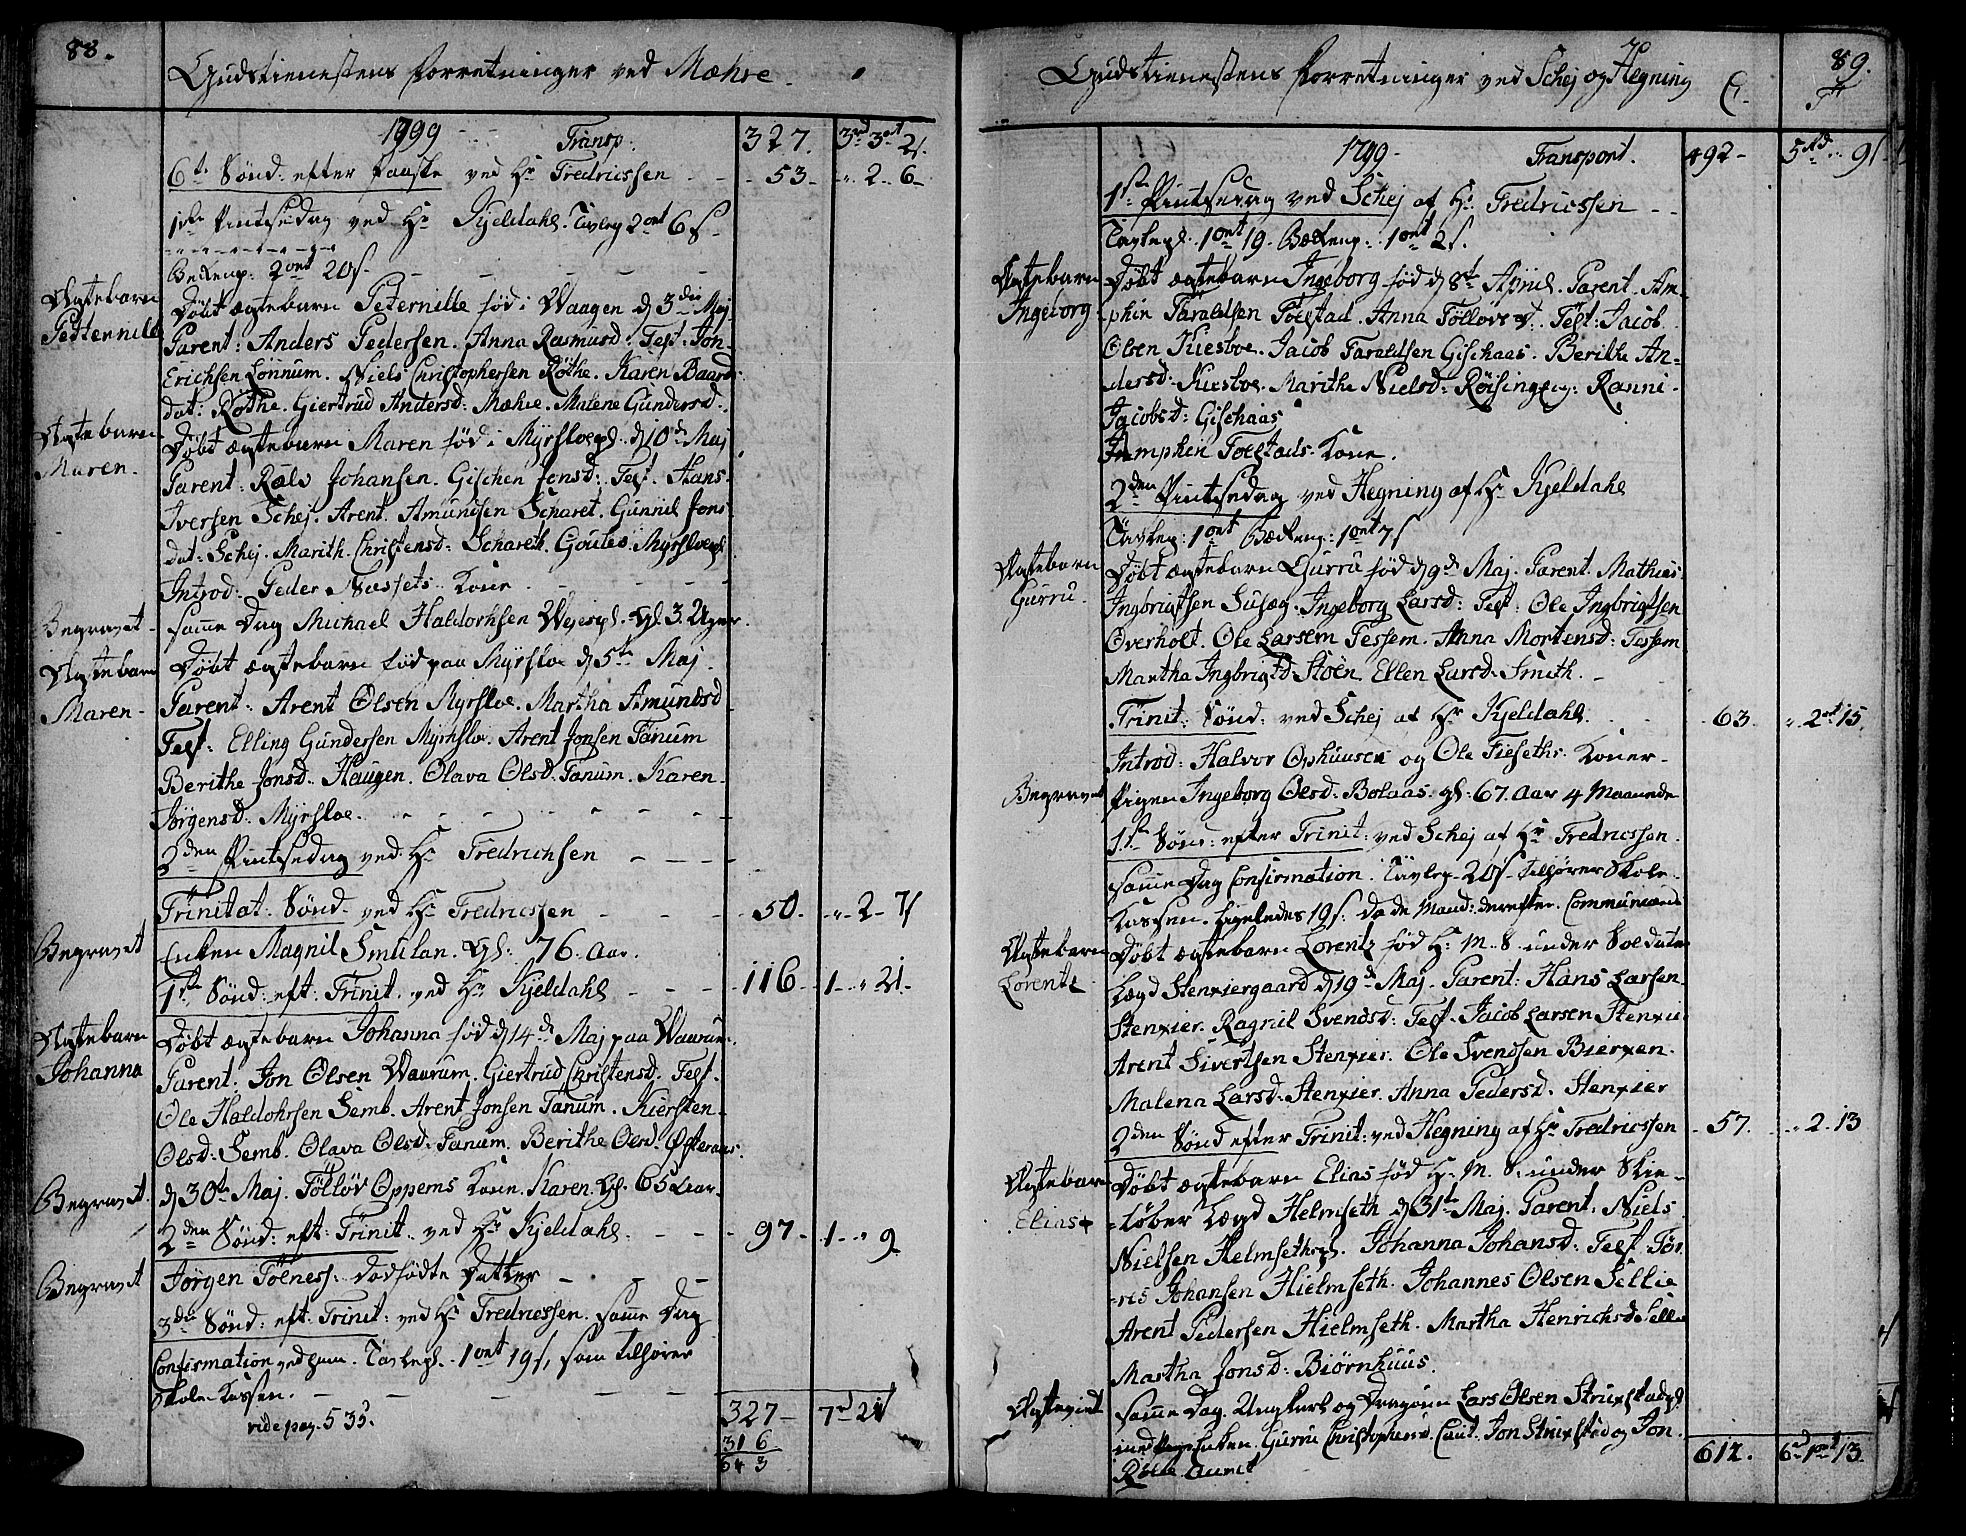 88.
Gudstienestens forretninger ved Mæhre.
1799 Transp: 327. 3rd 3ort 21.
6te Sønd: efter Paaske ved Hr Fredricssen 53 - 2 - 6
1ste Pintsedag ved Hr Kjeldahl. Tavlep 2ort 6 s
Bekenp: 2ort 20 s
Ægtebarn Petternille
Døbt ægtebarn Peternille fød i Waagen d 3die Maj
Parent: Anders Pedersen. Anna Rasmusd: Test: Jon
Erichsen Lønnum. Niels Christophersen Røthe. Karen Baards
dat: Røthe. Giertrud Andersd: Mæhre. Malene Gundersd:
Ægtebarn Maren.
Døbt ægtebarn Maren fød i Myrsloepl. d 10de Maj
Parent: Ralv Johansen. Gischen Jonsd: Test. Hans
Iversen Schej. Arent Amundsen Scharet. Gunnil Jons
dat: Schej. Marith Christensd: Schareth. Goutes Myrsloepl
Introd: Peder Næssets Kone
Begravet
samme Dag Michael Haldorhsen Wejerpl. Gl. 3. Uger.
Ægtebarn Maren
Døbt ægtebarn fød paa Myrsloe d 5te Maj.
Parent: Arent Olsen Myrsloe. Martha Amundsd
Test: Elling Gundersen Myrhsloe. Arent Jonsen Tanum
Berithe Jonsd. Haugen. Olava Olsd. Tanum. Karen
Jørgensd. Myrsloe.
2den Pintsedag ved Hr Fredrichsen
Trinitat: Sønd. ved Hr Fredricssen 50. - 2 - 7 s
Begravet
Enken Magnil Smulan. Gl: 76. Aar.
1ste Sønd: eft: Trinit. ved Hr Kjeldahl 116 1 - 21.
Ægtebarn Johanna
Døbt ægtebarn Johanna fød d 14de Maj paa Waurum.
Parent. Jon Olsen Waurum. Giertrud Christensd. Test.
Ole Haldohrsen Semb. Arent Jonsen Tanum. Kiersten
Olsd: Semb. Olava Olsd. Tanum. Berithe Olsd. Østeraas.
Begravet
d 30te Maj. Tølløv Oppems Kone. Karen. Gl. 65 Aar.
2den Sønd: eft: Trinit. ved Hr Kjeldahl. 97 1 - 9
Begravet
Jørgen Tølness: dødfødte Datter
3die Sønd: eft: Trinit: ved Hr Fredricssen. samme Dag
Confirmation ved ham. Tavlepl. 1ort 19 s, som tilhører
Skole-Kassen.
vide pag. 535. 327 7rd 21 s
316
643
89.
Gudstienestens forretninger ved Schej og Hegning C.
1799. Transport. 492 5rd 9 s
1ste Pintsedag ved Schej af Hr. Fredricssen
Tavlepl. 1ort 19. Bækenp: 1ort 2 s.
Ægtebarn Ingeborg
Døbt ægtebarn Ingeborg fød d 8te April. Parent. Am-
phin Taraldsen Foelstad. Anna Tølløvsd: Test: Jacob
Olsen Kuesboe. Jacob Taraldsen Gischaas. Berithe An-
dersd: Kuesboe. Marithe Nielsd: Røisingeng: Ranni
Jacobsd: Gischaas
Amphin Foelstads Kone.
2den Pintsedag ved Hegning af Hr Kjeldahl
Tavlep: 1ort Bækenp: 1ort 7 s
Ægtebarn Gurru
Døbt ægtebarn Gurru fød d 9de Maj. Parent. Mathias
Ingbrigtsen Susæg. Ingeborg Larsd: Test: Ole Ingbrigtsen
Overholt. Ole Larsem Tessem. Anna Mortensd: Tessem
Martha Ingbrigtsd Støen. Ellen Larsd. Smith.
Trinit: Sønd: ved Schej af Hr Kjeldahl. 63. - 2ort 15.
Introd: Halvor Ophuuses og Ole Fieseths Koner.
Begravet
Pigen Ingeborg Olsd: Bolaas. gl. 67. Aar 4 Maaneder
1ste Sønd: efter Trinit: ved Schej af Hr Fredricssen.
samme Dag Confirmation. Tavlep. 20 s tilhører Skole
Kassen. Ligeledes 19 s. da de Mand: derefter Communicered
Ægtebarn Lorentz
Døbt ægtebarn Lorentz fød H: M: S. under Soldater
Lægd Stenxiergaard d 19de Maj. Parent: Hans Larsen
Stenxier. Ragnil Svendsd: Test. Jacob Larsen Stenxier
Arent Sivertsen Stenxier. Ole Svendsen Bierxen.
Malena Larsd. Stenxier. Anna Pedersd. Stenxier
2den Sønd efter Trinit: ved Hegning af Hr Fredricssen 57. - 2 - 13
Ægtebarn Elias
Døbt ægtebarn Elias fød H. M. S. under Skie-
løber Lægd Helmseth d 31te Maj. Parent. Niels
Nielsen Helmsethspl. Johanna Johansd: Test. Tør-
res Johansen Hielmseth. Johannes Olsen Sellie
Arent Pedersen Hielmseth. Martha Henrichsd. Sellie
Martha Jonsd: Biørnhuus.
Ægteviet
samme Dag. Ungkarl og Dragoun Lars Olsen Struxstadpl
med Enken Gurru Christophersd. Caut. Jon Struxstad og Jon
Røsle Aunet 612. 6rd 1ort 13.